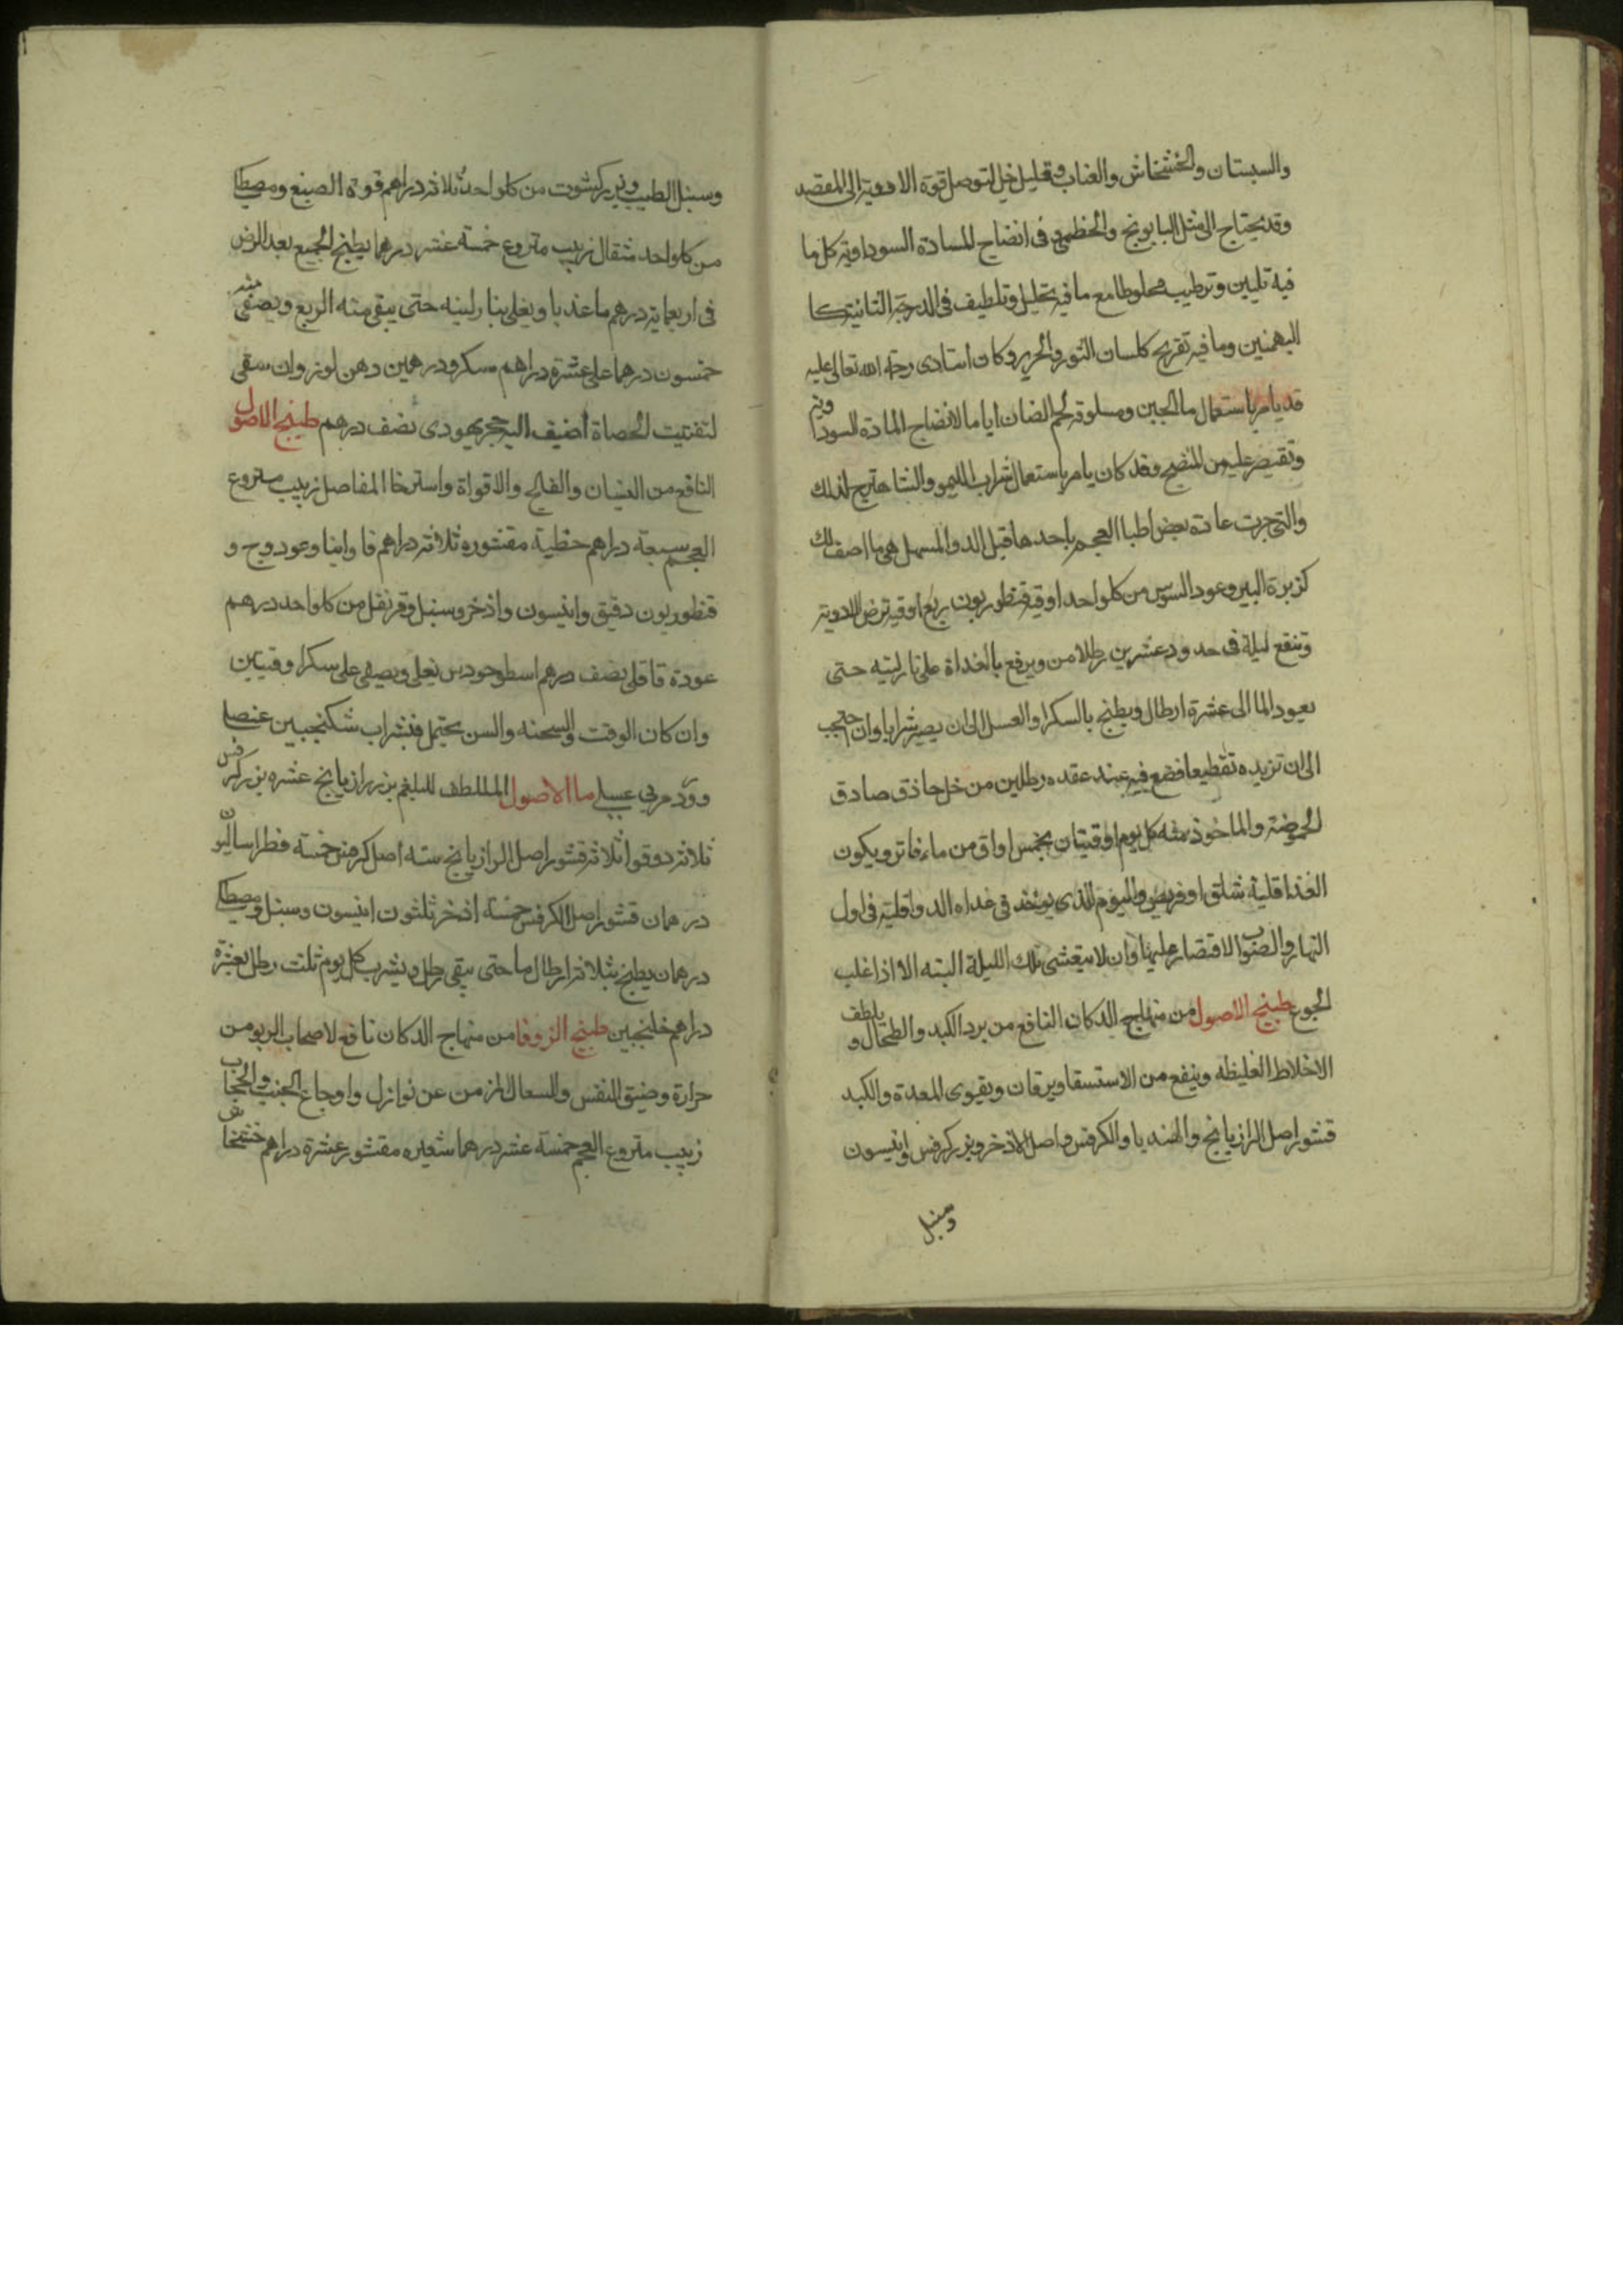 والسبستان والخشخاش والعناب وقليل خل لتوصل قوة الادوية الى المقصد
وقد يحتاج الى مثل البابونج والخطمى فى انضاج المادة السوداوية كل ما
فيه تليين وترطيب مخلوطا مع ما فيه تحليل وتلطيف فى الدرجة الثانية كا
البهمنين وما فيه تفريح كلسان الثور والحرير وكان استادى رحمة الله تعالى عليه
قد يامر باستعمال ما الجبن ومسلوقة لحم الضان اياما لانضاج المادة السوداوية
وتقيصر عليه من المنضج وقد كان يامر باستعمال شراب الليمو والشاهترج لذلك
والتى جرت عادة بعض اطبا العجم باحدها قبل الدوا المسهل هى ما اصف لك
كزبرة البير وعود السوس من كلواحد اوقية قنطوريون ربع اوقية ترض الادوية
وتنقع ليلة فى حدود عشرين رطلا من ويرفع بالغداة على نار لينه حتى
يعود الما الى عشرة ارطال ويطبخ بالسكر او العسل الى ان يصير شرابا وان احتجب
الى ان تزيده تقطيعا فضع فيه عند عقده رطلين من خل حاذق صادق
الحموضة والماخوذ منه كل يوم اوقيتان بخمس اواق من ماء فاتر ويكون
الغذا قلية شلق او فريض واليوم الذى يوخذ فى غداه الدوا قلية فى اول
النهار والصواب الاقتصار عليها وان لا يتعشى تلك الليلة البته الا اذا غلب
الجوع طبيخ الاصول من منهاج الدكان النافع من برد الكبد والطحال ويلطف
الاخلاط الغليظه وينفع من الاستسقا ويرقان ويقوى المعدة والكبد
قشور اصل الرازيانج والهنديا والكرفس واصل الاذخر وبزر كرفس وانيسون
وسنبل
وسنبل الطيب وبزر كشوت من كلواحد ثلاثة دراهم فوة الصبغ ومصطكا
من كلواحد مثقال زبيب منزوع خمسة عشر درهما يطبخ الجميع بعد الرض
فى اربعماية درهم ما عذبا ويغلى بنار لينه حتى يبقى منه الربع ويصفى منه
خمسون درهما على عشرة دراهم سكر ودرهمين دهن لوز وان سقى
لتفتيت الحصاة اضيف اليه حجر يهودى نصف درهم طبيخ الاصول
النافع من النسيان والفالج والاقواة واسترخا المفاصل زبيب منزوع
العجم سبعة دراهم حنطية مقشوره ثلاثة دراهم فاوانيا وعود وج و
قنطوريون دقيق وانيسون واذخر وسنبل وقرنفل من كلواحد درهم
عودة قاقلى نصف درهم اسطوخودس يغلى ويصفى على سكر اوقيتين
وان كان الوقت والسحنه والسن يحتمل فبشراب شكنجبين عنصلى
وورد مربى عسلى ما الاصول الملطف للبلغم بزر رازيانج عشره بزر كرفس
ثلاثة دوقوا ثلاثة قشور اصل الرازيانج سته اصل كرفس خمسة فطراساليون
درهمان قشور اصل الكرفس خمسة اذخر ثلثون انيسون وسنبل ومصطكا
درهمان يطبخ بثلاثة ارطال ما حتى يبقى رطل ويشرب كل يوم ثلث رطل بعشرة
دراهم خلنجبين طبيخ الزوفا من منهاج الدكان نافع لاصحاب الربو من
حرارة وضيق النفس والسعال المزمن عن نوازل واوجاع الجنب والحجاب
زبيب منزوع العجم خمسة عشر درهما شعيره مقشور عشرة دراهم خشخاش